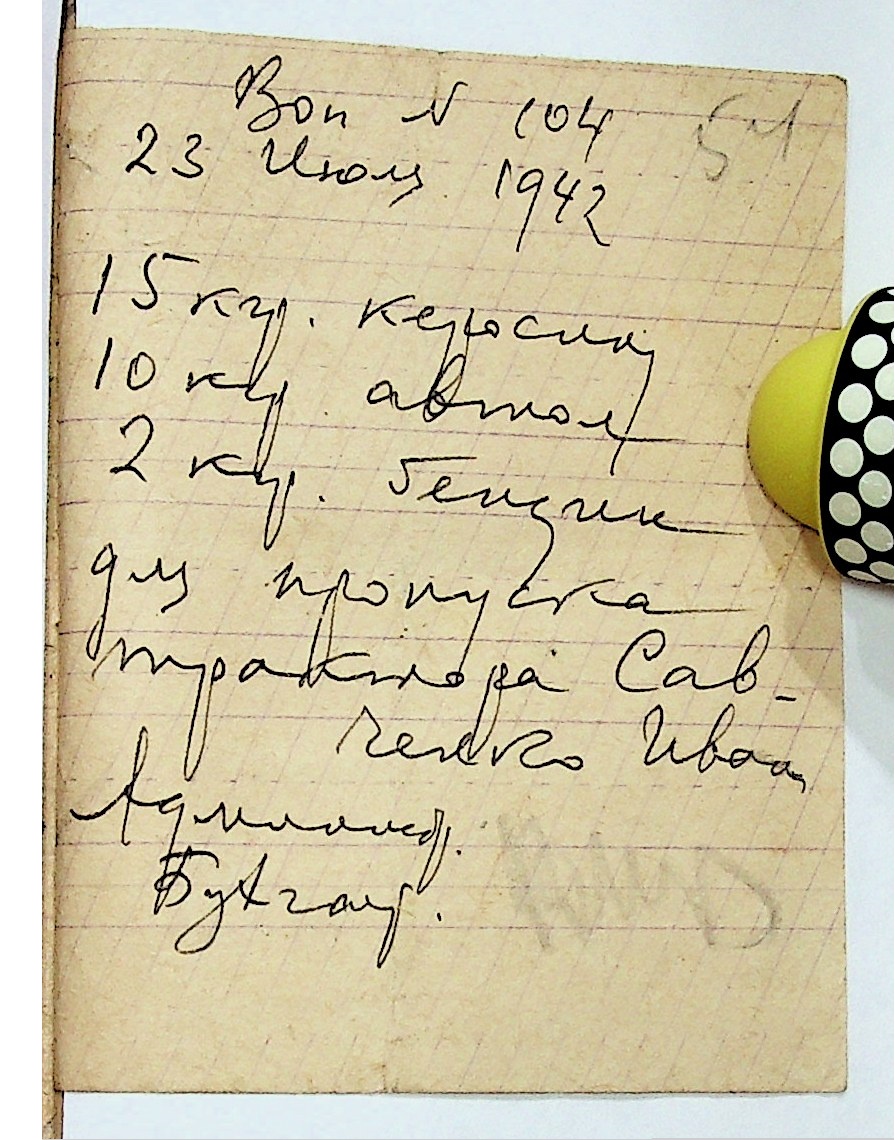 Бон N 104
23 Июля 1942
15 кгр. керосина
10 кгр. автол
2 кгр. бензин
для пропуска
трактора Сав-
ченко Иван
Администр.
Бухгалт.